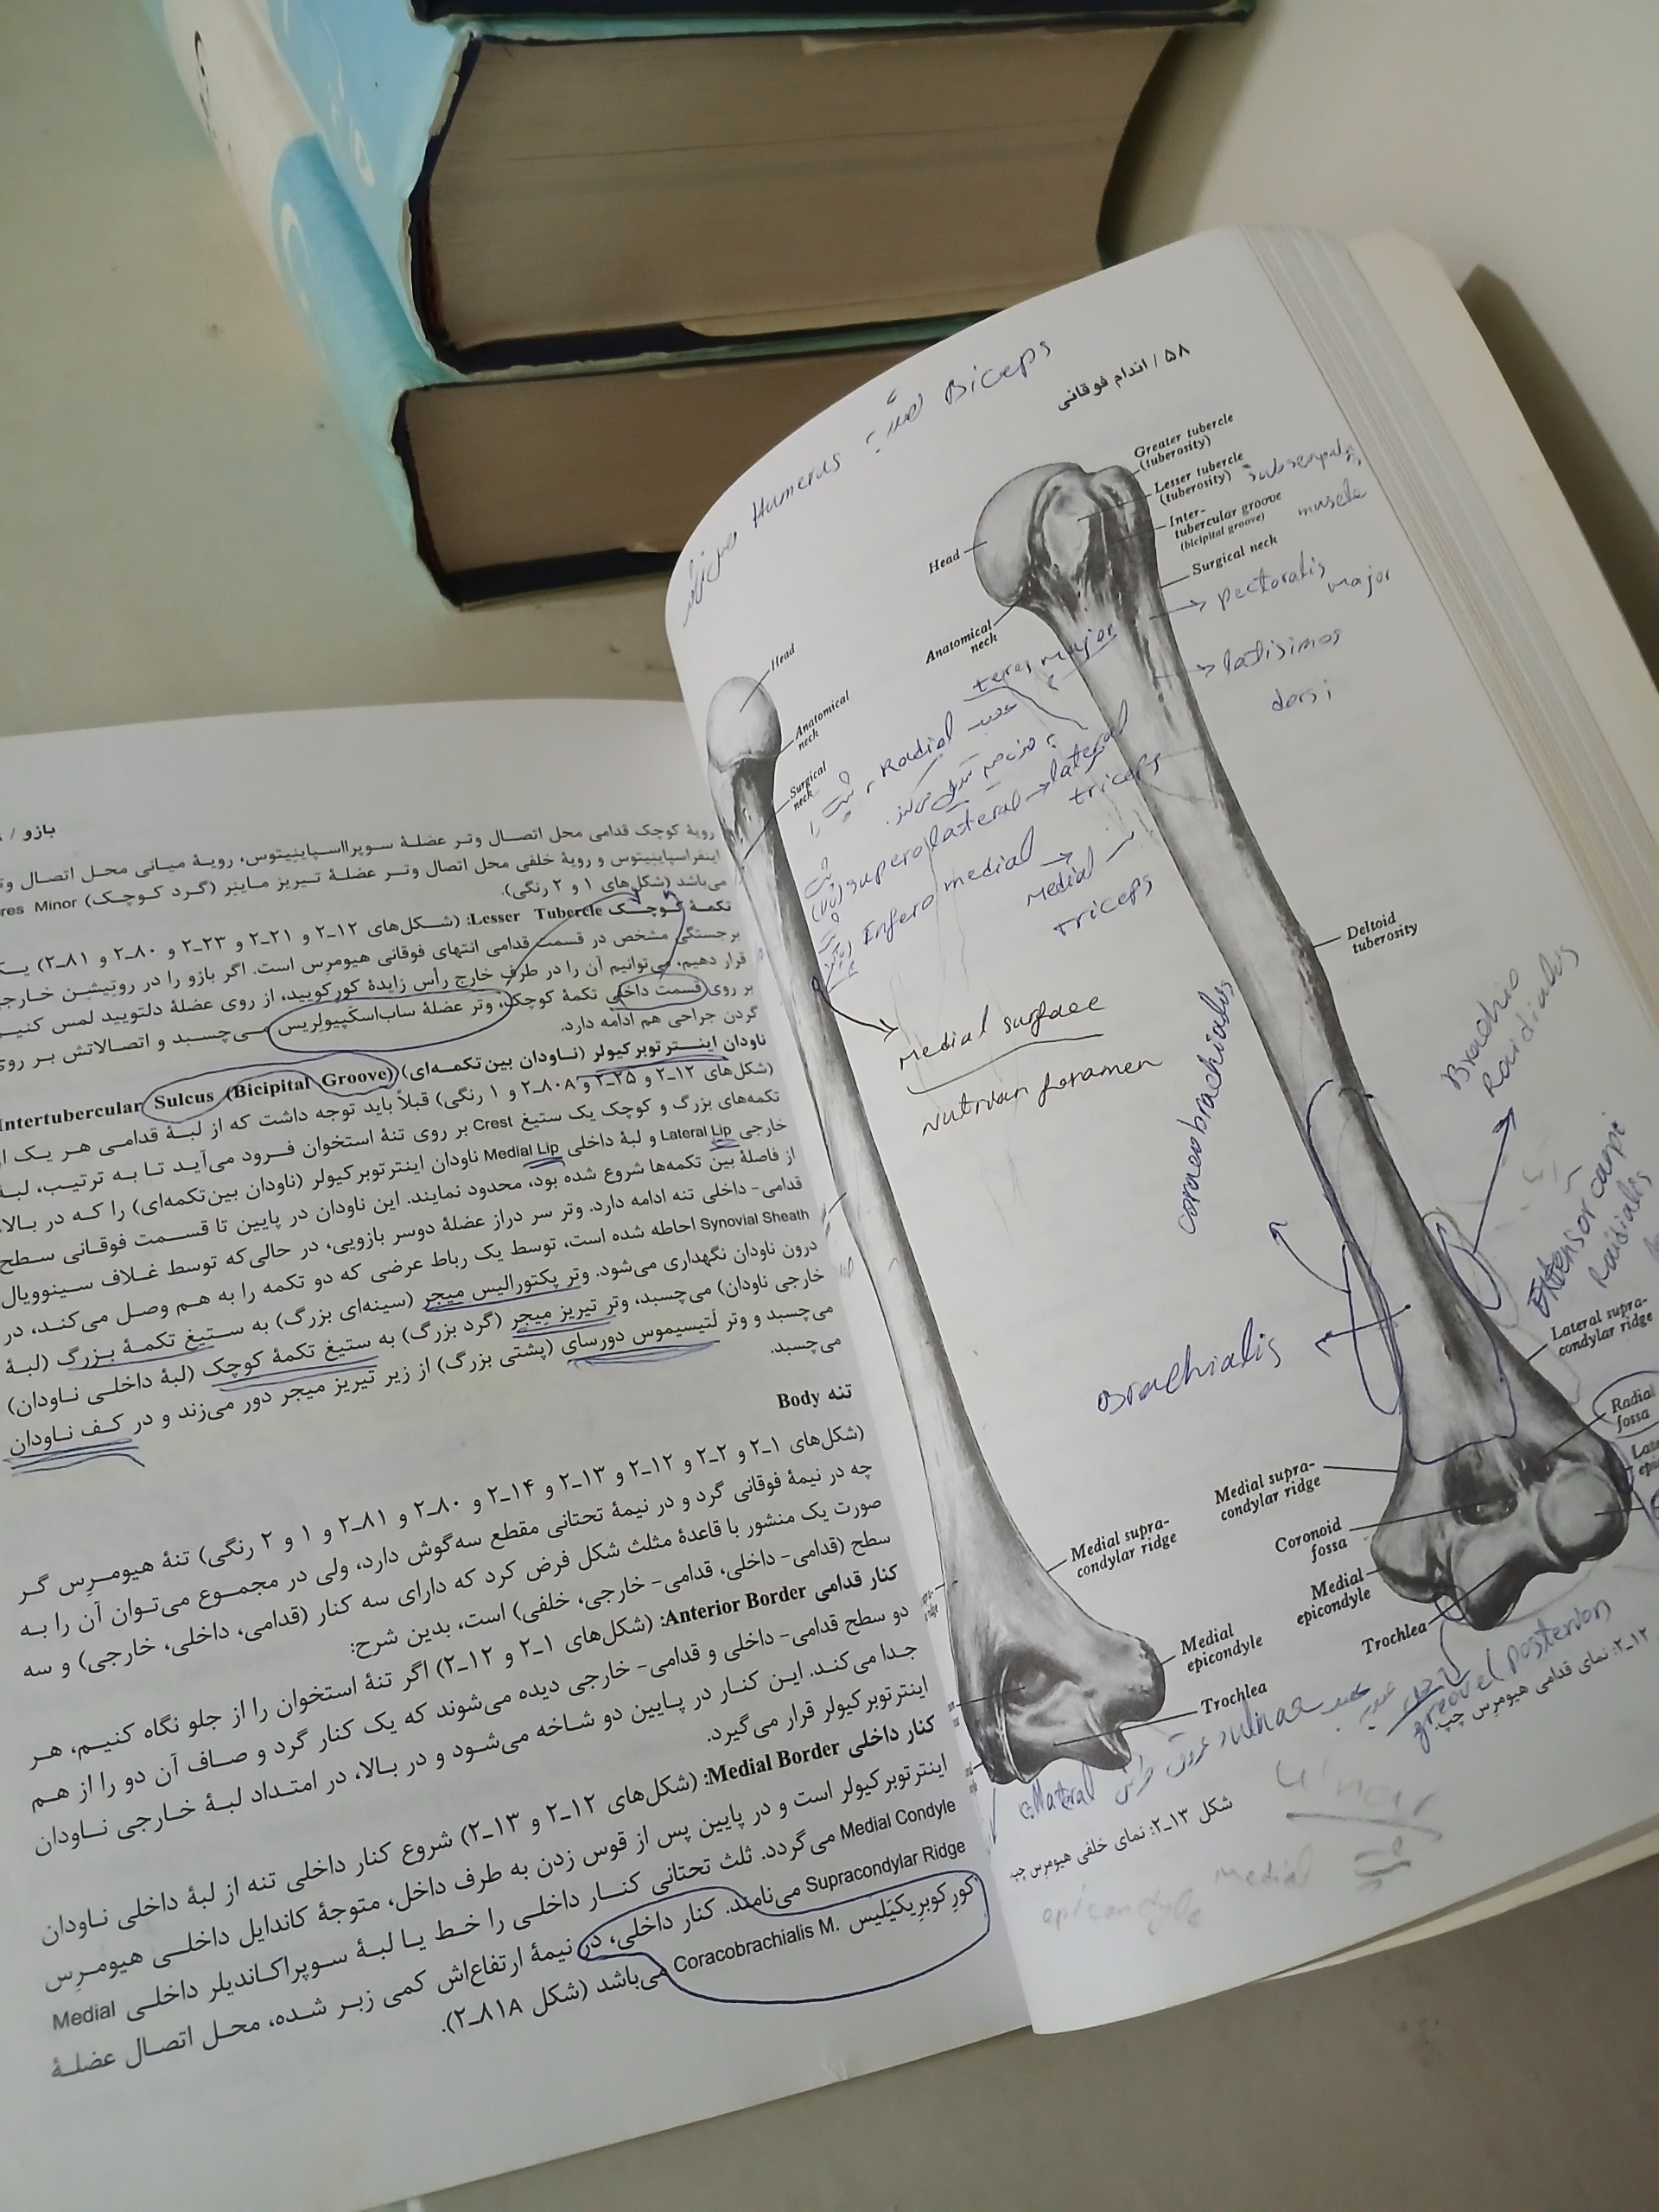 ۵۸ / اندام فوقانی
Humerus
Biceps
Greater tubercle
(tuberosity)
Lesser tubercle
(tuberosity)
muscle
Inter-
tubercular groove
(bicipital groove)
Surgical neck
Head
Anatomical
neck
pectoralis
major
latisimos
dorsi
teres major
Radial
superolateral → lateral
triceps
medial →
Medial
triceps
Head
Anatomical
neck
Surgical
neck
Deltoid
tuberosity
Medial surface
Nutrian foramen
coracobrachialus
Brachio
Raidialus
Extensor carpi
Raidialis
Brachialis
Lateral supra-
condylar ridge
Radial
fossa
Medial supra-
condylar ridge
Coronoid
fossa
Medial
epicondyle
Trochlea
Medial supra-
condylar ridge
Medial
epicondyle
Trochlea
(posterior)
۲-۱۲: نمای قدامی هیومرِس چپ.
collateral
شکل ۱۳-۲: نمای خلفی هیومرِس چپ
ulnar
Medial
epicondyle
بازو /
رویهٔ کوچک قدامی محل اتصال وتر عضلهٔ سوپرااسپاینیتوس، رویهٔ میانی محل اتصال
اینفرااسپاینیتوس و رویهٔ خلفی محل اتصال وتر عضلهٔ تیریز ماینِر (گرد کوچک) Minor
می‌باشد (شکل‌های ۱ و ۲ رنگی).
تکمهٔ کوچک Lesser Tubercle: (شکل‌های ۱۲-۲ و ۲۱-۲ و ۲۳-۲ و ۸۰-۲ و ۸۱-۲)
برجستگی مشخص در قسمت قدامی انتهای فوقانی هیومرِس است. اگر بازو را در روتیشِن
قرار دهیم، می‌توانیم آن را در طرف خارج رأس زایدهٔ کورکویید، از روی عضلهٔ دلتویید لمس
بر روی قسمت داخلی تکمهٔ کوچک، وتر عضلهٔ ساب‌اسکَپیولِریس می‌چسبد و اتصالاتش بر روی
گردن جراحی هم ادامه دارد.
ناودان اینترتوبرکیولر (ناودان بین‌تکمه‌ای) Intertubercular Sulcus (Bicipital Groove)
(شکل‌های ۱۲-۲ و ۲۵-۲ و ۸۰A-۲ و ۱ رنگی) قبلاً باید توجه داشت که از لبهٔ قدامی هر یک
تکمه‌های بزرگ و کوچک یک ستیغ Crest بر روی تنهٔ استخوان فرود می‌آید تا به ترتیب،
خارجی Lateral Lip و لبهٔ داخلی Medial Lip ناودان اینترتوبرکیولر (ناودان بین‌تکمه‌ای) را که در
از فاصلهٔ بین تکمه‌ها شروع شده بود، محدود نمایند. این ناودان در پایین تا قسمت فوقانی سطح
قدامی- داخلی تنه ادامه دارد. وتر سر دراز عضلهٔ دوسر بازویی، در حالی‌که توسط غلاف سینوویال
Synovial Sheath احاطه شده است، توسط یک رباط عرضی که دو تکمه را به هم وصل می‌کند، در
درون ناودان نگهداری می‌شود. وتر پکتورالیس میجر (سینه‌ای بزرگ) به ستیغ تکمهٔ بزرگ (لبهٔ
خارجی ناودان) می‌چسبد، وتر تیریز میجر (گرد بزرگ) به ستیغ تکمهٔ کوچک (لبهٔ داخلی ناودان)
می‌چسبد و وتر لَتیسیموس دورسای (پشتی بزرگ) از زیر تیریز میجر دور می‌زند و در کف ناودان
می‌چسبد.
تنه Body
(شکل‌های ۱-۲ و ۲-۲ و ۱۲-۲ و ۱۳-۲ و ۱۴-۲ و ۸۰-۲ و ۸۱-۲ و ۱ و ۲ رنگی) تنهٔ هیومرِس گر
چه در نیمهٔ فوقانی گرد و در نیمهٔ تحتانی مقطع سه‌گوش دارد، ولی در مجموع می‌توان آن را به
صورت یک منشور با قاعدهٔ مثلث شکل فرض کرد که دارای سه کنار (قدامی، داخلی، خارجی) و سه
سطح (قدامی- داخلی، قدامی- خارجی، خلفی) است، بدین شرح:
کنار قدامی Anterior Border: (شکل‌های ۱-۲ و ۱۲-۲) اگر تنهٔ استخوان را از جلو نگاه کنیم، هر
دو سطح قدامی- داخلی و قدامی- خارجی دیده می‌شوند که یک کنار گرد و صاف آن دو را از هم
جدا می‌کند. این کنار در پایین دو شاخه می‌شود و در بالا، در امتداد لبهٔ خارجی ناودان
اینترتوبرکیولر قرار می‌گیرد.
کنار داخلی Medial Border: (شکل‌های ۱۲-۲ و ۱۳-۲) شروع کنار داخلی تنه از لبهٔ داخلی ناودان
اینترتوبرکیولر است و در پایین پس از قوس زدن به طرف داخل، متوجهٔ کاندایل داخلی هیومرِس
Medial Condyle می‌گردد. ثلث تحتانی کنار داخلی را خط یا لبهٔ سوپراکاندیلر داخلی Medial
Supracondylar Ridge می‌نامند. کنار داخلی، در نیمهٔ ارتفاعاش کمی زبر شده، محل اتصال عضلهٔ
کورِکوبرِیکیَلیس Coracobrachialis M. می‌باشد (شکل ۸۱A-۲).